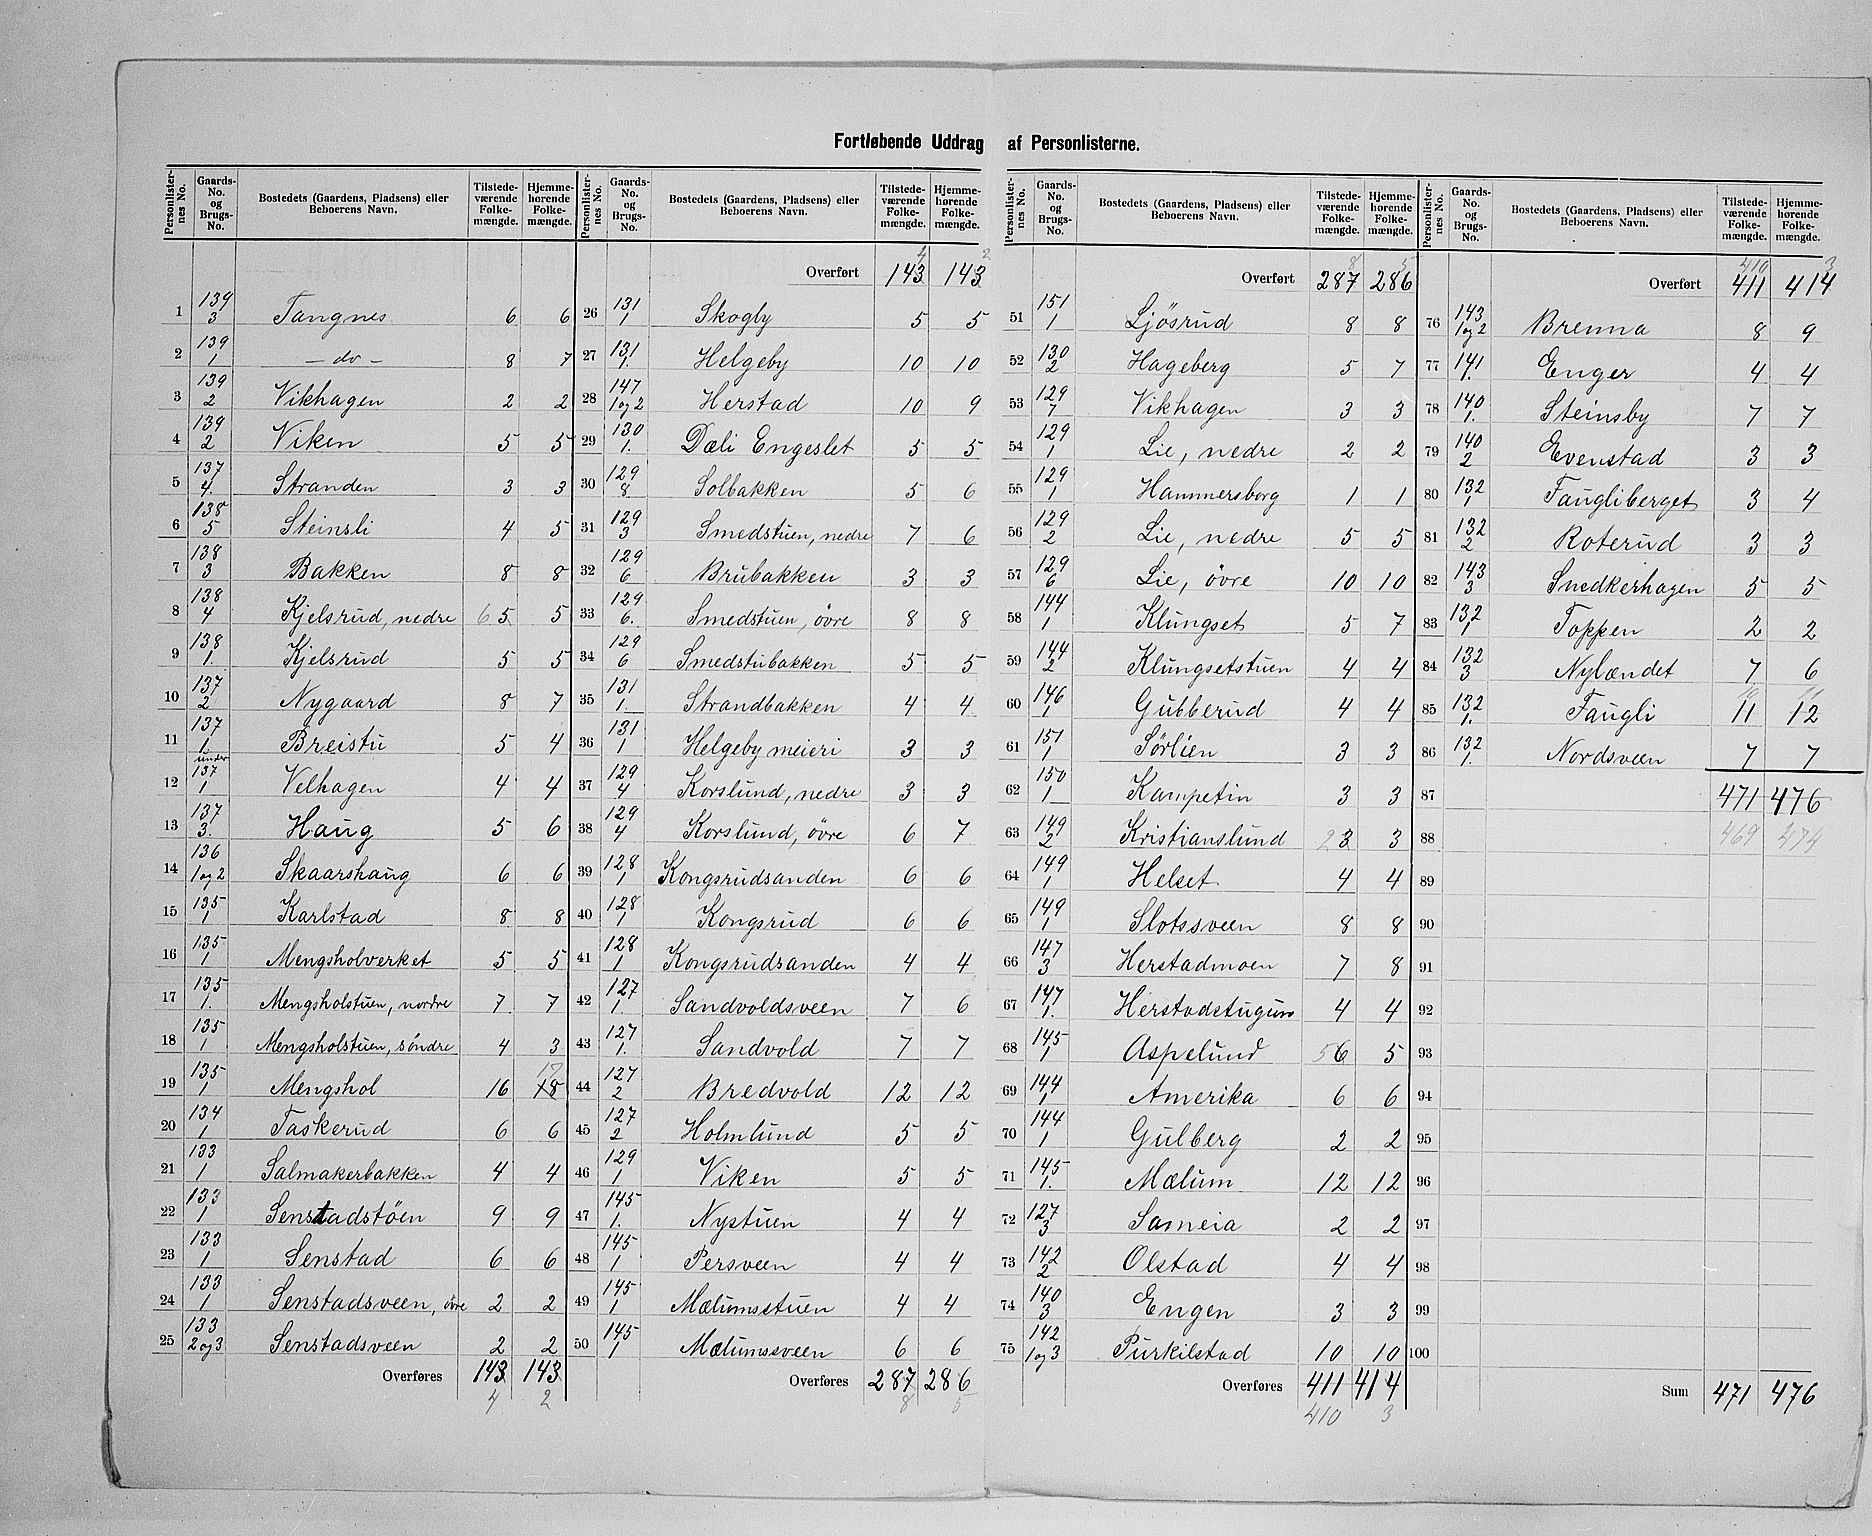 Fortløbende Uddrag af Personlisterne.
Personlisternes No. | Gaards-No. og Brugs-No. | Bostedets (Gaardens, Pladsens) eller Beboerens Navn. | Tilstedeværende Folkemængde. | Hjemmehørende Folkemængde.
1 139/3 Tangnes 6 6
2 139/1 — do — 8 7
3 139/2 Vikhagen 2 2
4 139/2 Viken 5 5
5 137/4. Stranden 3 3
6 138/5 Steinsli 4 5
7 138/3 Bakken 8 8
8 138/4 Kjelsrud, nedre 6 5 5
9 138/1. Kjelsrud 5 5
10 137/2 Nygaard 8 7
11 137/1 Breistu 5 4
12 under 137/1 Velhagen 4 4
13 137/3. Haug 5 6
14 136/1 og 2 Skaarshaug 6 6
15 135/1 Karlstad 8 8
16 135/1 Mengsholverket 5 5
17 135/1. Mengsholstuen, nordre 7 7
18 135/1 Mengsholstuen, söndre 4 3
19 135/1 Mengshol 16 18 17
20 134/1 Taskerud 6 6
21 133/1 Salmakerbakken 4 4
22 133/1 Senstadstöen 9 9
23 133/1 Senstad 6 6
24 133/1 Senstadsveen, övre 2 2
25 133/2 og 3 Senstadsveen 2 2
Overføres 143 143
4 2
4 2
Overført 143 143
26 131/1 Skogly 5 5
27 131/1. Helgeby 10 10
28 147/1 og 2 Herstad 10 9
29 130/1. Dæli Engeslet 5 5
30 129/8 Solbakken 5 6
31 129/3 Smedstuen, nedre 7 6
32 129/6 Brubakken 3 3
33 129/6. Smedstuen, övre 8 8
34 129/6 Smedstubakken 5 5
35 131/1 Strandbakken 4 4
36 131/1 Helgeby meieri 3 3
37 129/4 Korslund, nedre 3 3
38 129/4 Korslund, övre 6 7
39 128/1 Kongsrudsanden 6 6
40 128/1 Kongsrud 6 6
41 128/1 Kongsrudsanden 4 4
42 127/1. Sandvoldsveen 7 6
43 127/1. Sandvold 7 7
44 127/2 Bredvold 12 12
45 127/2 Holmlund 5 5
46 129/1 Viken 5 5
47 145/1. Nystuen 4 4
48 145/1 Persveen 4 4
49 145/1 Mælumsstuen 4 4
50 145/1 Mælumssveen 6 6
Overføres 287 286
8 5
8 5
Overført 287 286
51 151/1 Ljösrud 8 8
52 130/2 Hageberg 5 7
53 129/7 Vikhagen 3 3
54 129/1 Lie, nedre 2 2
55 129/1 Hammersborg 1 1
56 129/2 Lie, nedre 5 5
57 129/6 Lie, övre 10 10
58 144/1 Klungset 5 7
59 144/2 Klungsetstuen 4 4
60 146/1 Gubberud 4 4
61 151/1 Sørlien 3 3
62 150/1 Kampetin 3 3
63 149/2 Kristianslund 2 3 3
64 149/1 Helset 4 4
65 149/1 Slotssveen 8 8
66 147/3 Herstadmoen 7 8
67 147/1. Herstadstugun 4 4
68 145/1 Aspelund 5 6 5
69 144/1 Amerika 6 6
70 144/1 Gulberg 2 2
71 145/1. Mælum 12 12
72 127/3 Sameia 2 2
73 142/2 Olstad 4 4
74 140/3 Engen 3 3
75 142/1 og 3 Purkilstad 10 10
Overføres 411 414
410 3
410 3
Overført 411 414
76 143/1 og 2 Brenna 8 9
77 141/1. Enger 4 4
78 140/1. Steinsby 7 7
79 140/2 Evenstad 3 3
80 132/1 Faugliberget 3 4
81 132/2 Roterud 3 3
82 143/3 Snedkerhagen 5 5
83 132/1 Toppen 2 2
84 132/3 Nylændet 7 6
10 11
85 132/1. Faugli 11 12
86 132/1. Nordsveen 7 7
87 471 476
88 469 474
89
90
91
92
93
94
95
96
97
98
99
100
Sum 471 476